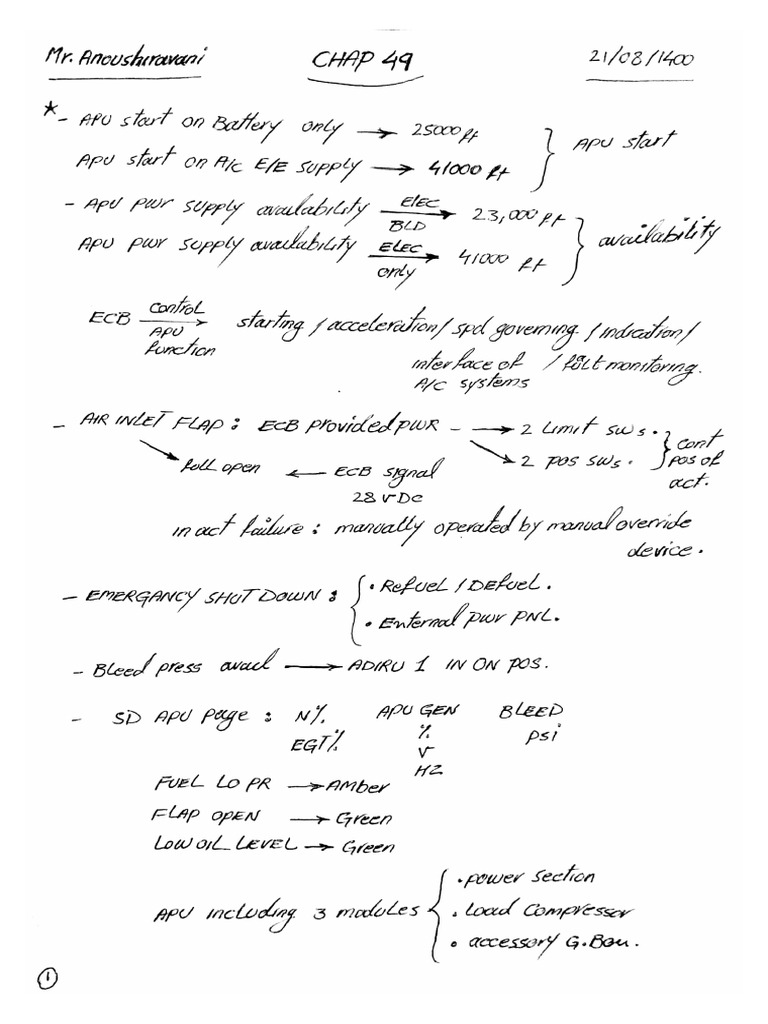 Mr. Anoushiravani CHAP 49 21/08/1400
* - APU start on Battery only → 25000 ft } APU start
APU start on A/C E/E supply → 41000 ft
- APU pwr supply availability ELEC BLD → 23,000 ft } availability
APU pwr supply availability ELEC only → 41000 ft
ECB control APU function → starting / acceleration / spd governing / indication /
interface of A/C systems / fult monitoring.
- AIR INLET FLAP : ECB provided pwr - → 2 limit sws. } cont pos of act.
→ 2 pos sws.
full open ← ECB signal
28 v DC
in act failure : manually operated by manual override
device.
- EMERGANCY SHUT DOWN : { • Refuel / Defuel.
• External pwr PNL.
- Bleed press avail → ADIRU 1 IN ON pos.
- SD APU page : N% APU GEN BLEED
EGT% % psi
V
HZ
FUEL LO PR → Amber
FLAP OPEN → Green
LOW OIL LEVEL → Green
APU including 3 modules { • power section
• Load Compressor
• accessory G.Box.
1